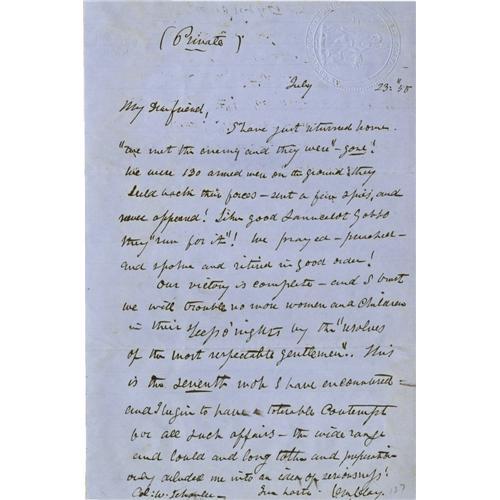 (Private)
July 23: "58
My Dear friend,
I have just returned home.
"We met the enemy and they were" - gone!
We were 120 armed men on the ground: they
held back their forces - sent a few spies, and
never appeared! Like good Launcelot Gobbo
they "run for it"! We prayed - preached -
and spoke and retired in good order!
Our victory is complete - and I trust
we will trouble no more women and children
in their sleeps o'nights by the "resolves
of the most respectable gentlemen". This
is the seventh mob I have encountered -
and I begin to have a tolerable contempt
for all such affairs - the wide range
and loud and long tother and preparation
only deluded me into an idea of seriousness!
Col: W. Schouler - C. M. Clay.
137